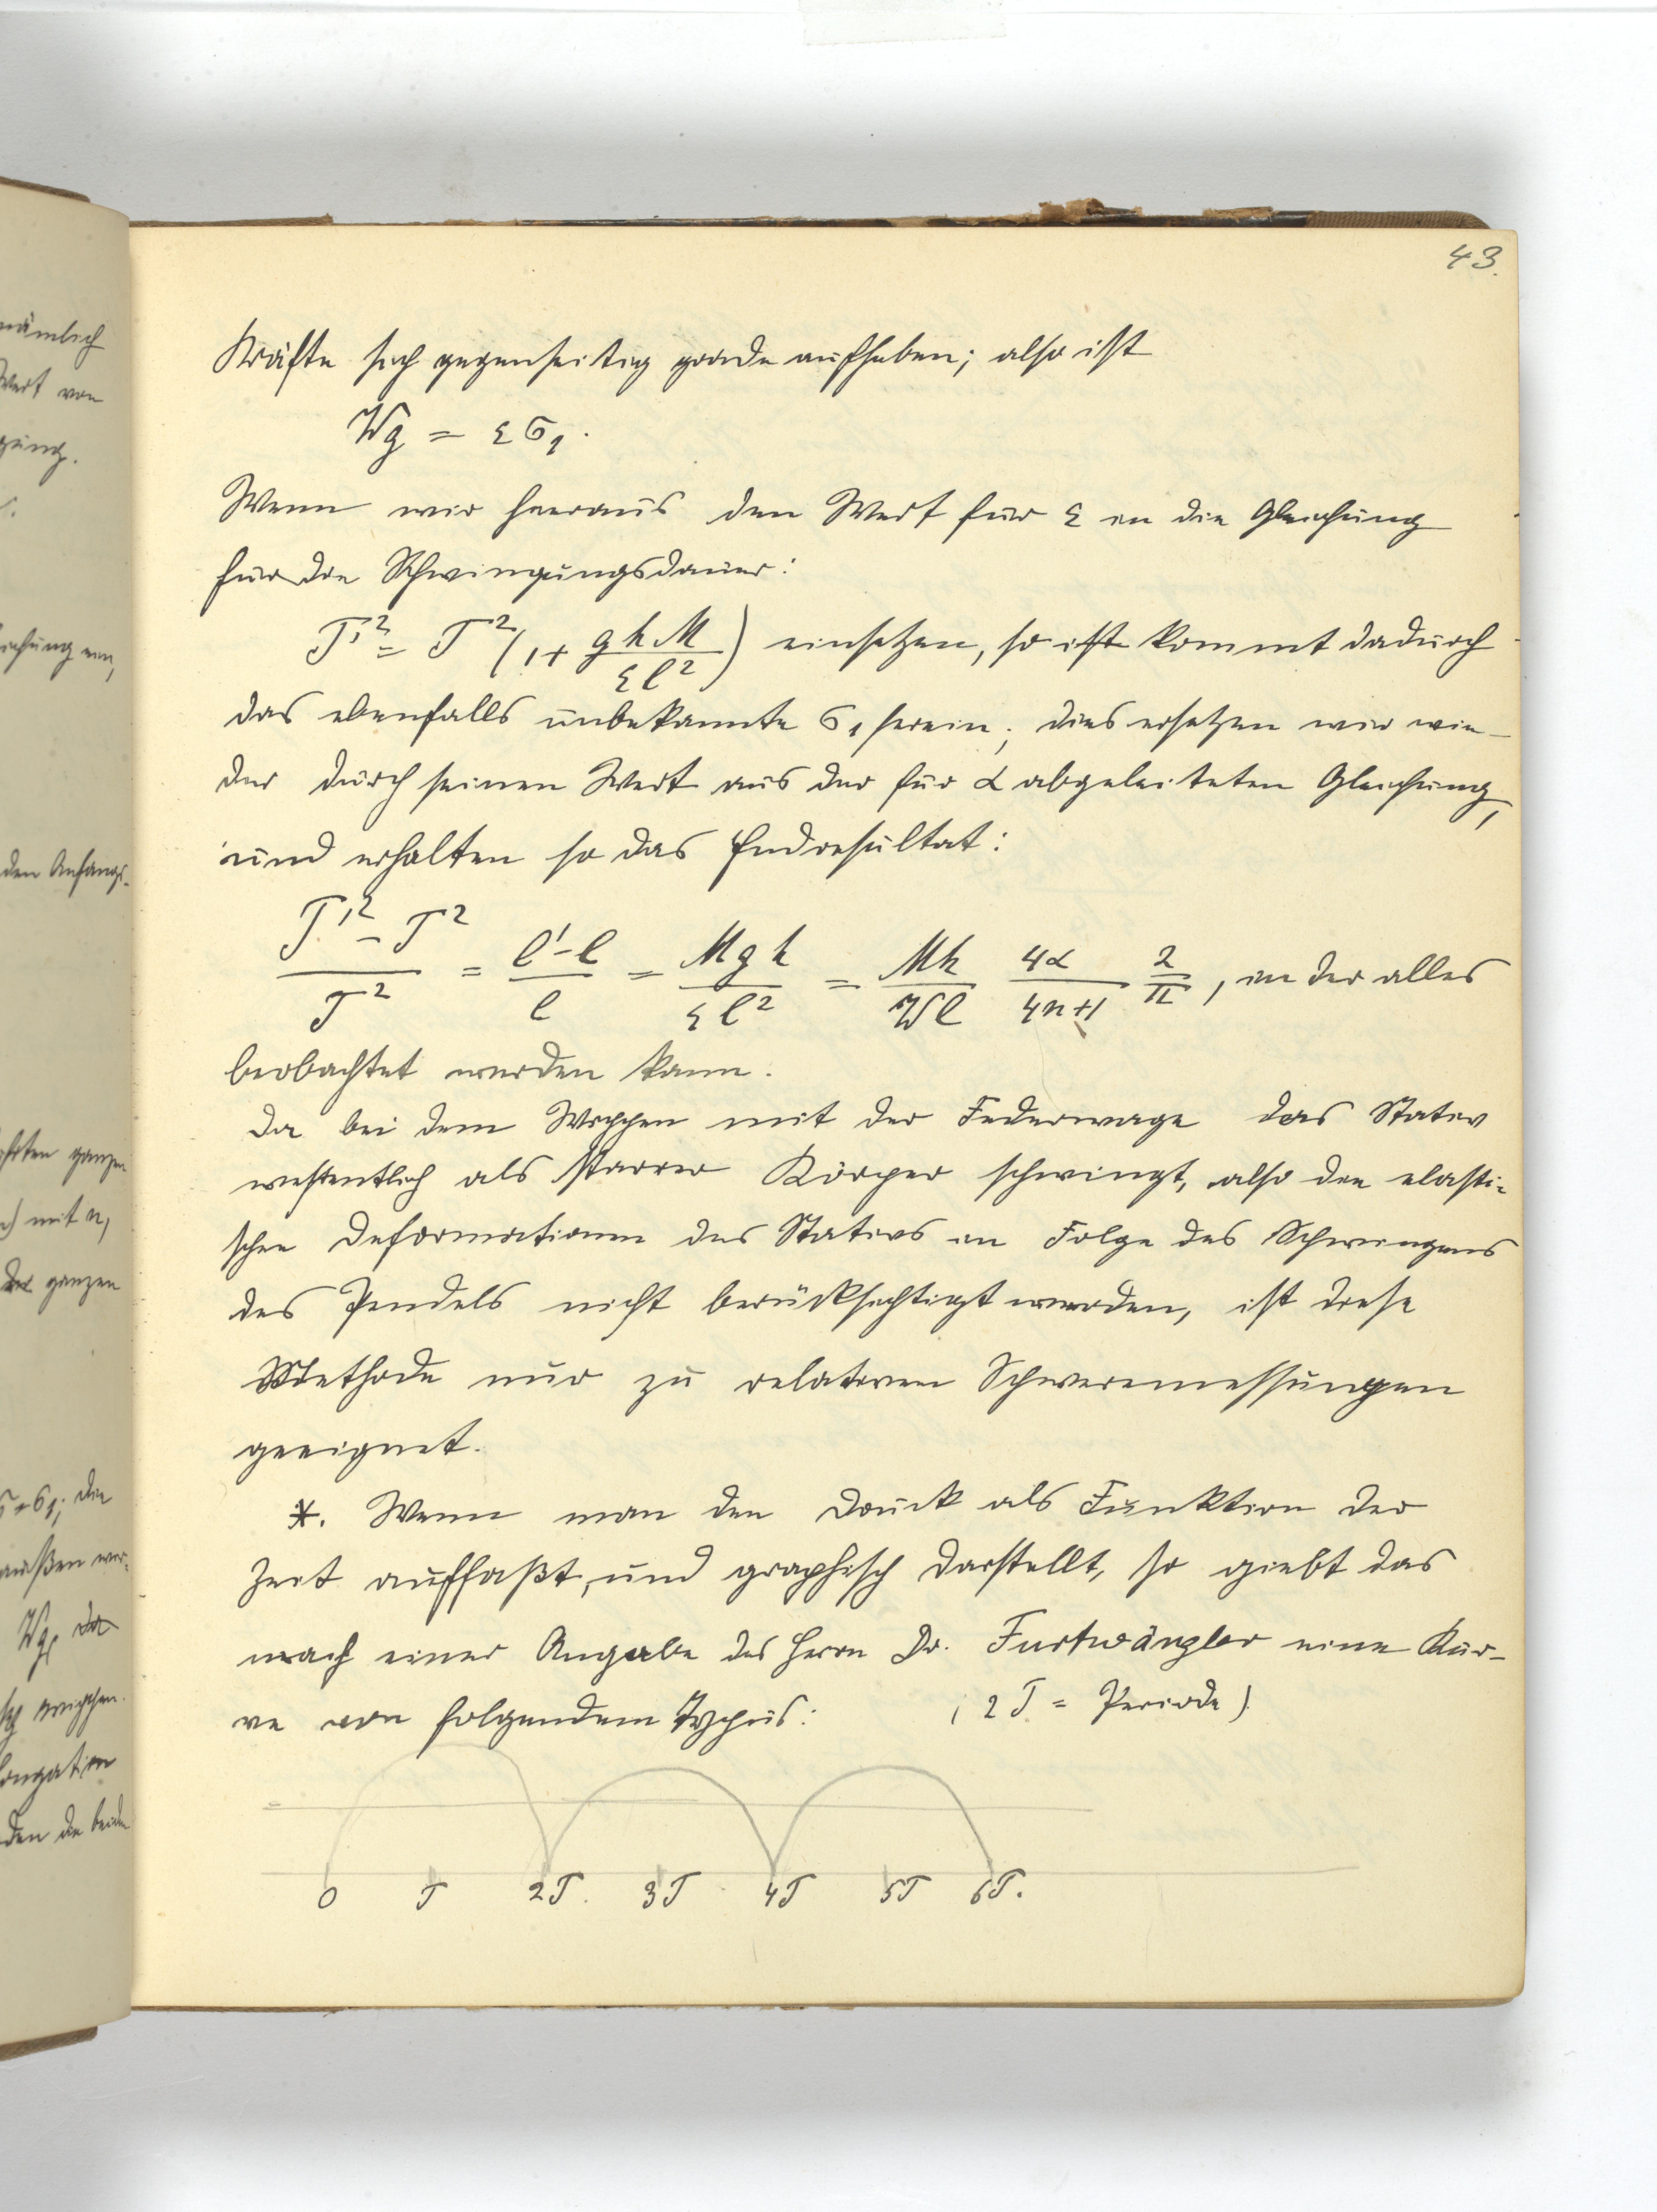 43.
Kräfte sich gegenseitig grade aufheben; also ist
Wg = εσ₁.
Wenn wir hieraus den Wert für ε in die Gleichung
für die Schwingungsdauer:
T'² = T² (1 + ghM / εl²) einsetzen, so ist kommt dadurch
das ebenfalls unbekannte σ₁ herein; dies ersetzen wir wie-
der durch seinen Wert aus der für α abgeleiteten Gleichung,
und erhalten so das Endresultat:
(T'² - T²) / T² = (l' - l) / l = Mgh / εl² = Mh / Wl 4α / 4n+1 2 / π, in der alles
beobachtet werden kann.
Da bei dem Wippen mit der Federwage das Stativ
wesentlich als starrer Körper schwingt, also die elasti-
schen Deformationen des Stativs in Folge des Schwingens
des Pendels nicht berücksichtigt werden, ist diese
Methode nur zu relativen Schweremessungen
geeignet.
*. Wenn man den Druck als Funktion der
Zeit auffaßt, und graphisch darstellt, so giebt das
nach einer Angabe des Herrn Dr. Furtwängler eine Kur-
ve von folgendem Typus: (2T = Periode)
0 T 2T. 3T 4T 5T 6T.
nämlich
Wert von
den Anfangs-
ganzen
mit n,
ganzen
σ₁; die
Wg,
wippen.
den die beiden